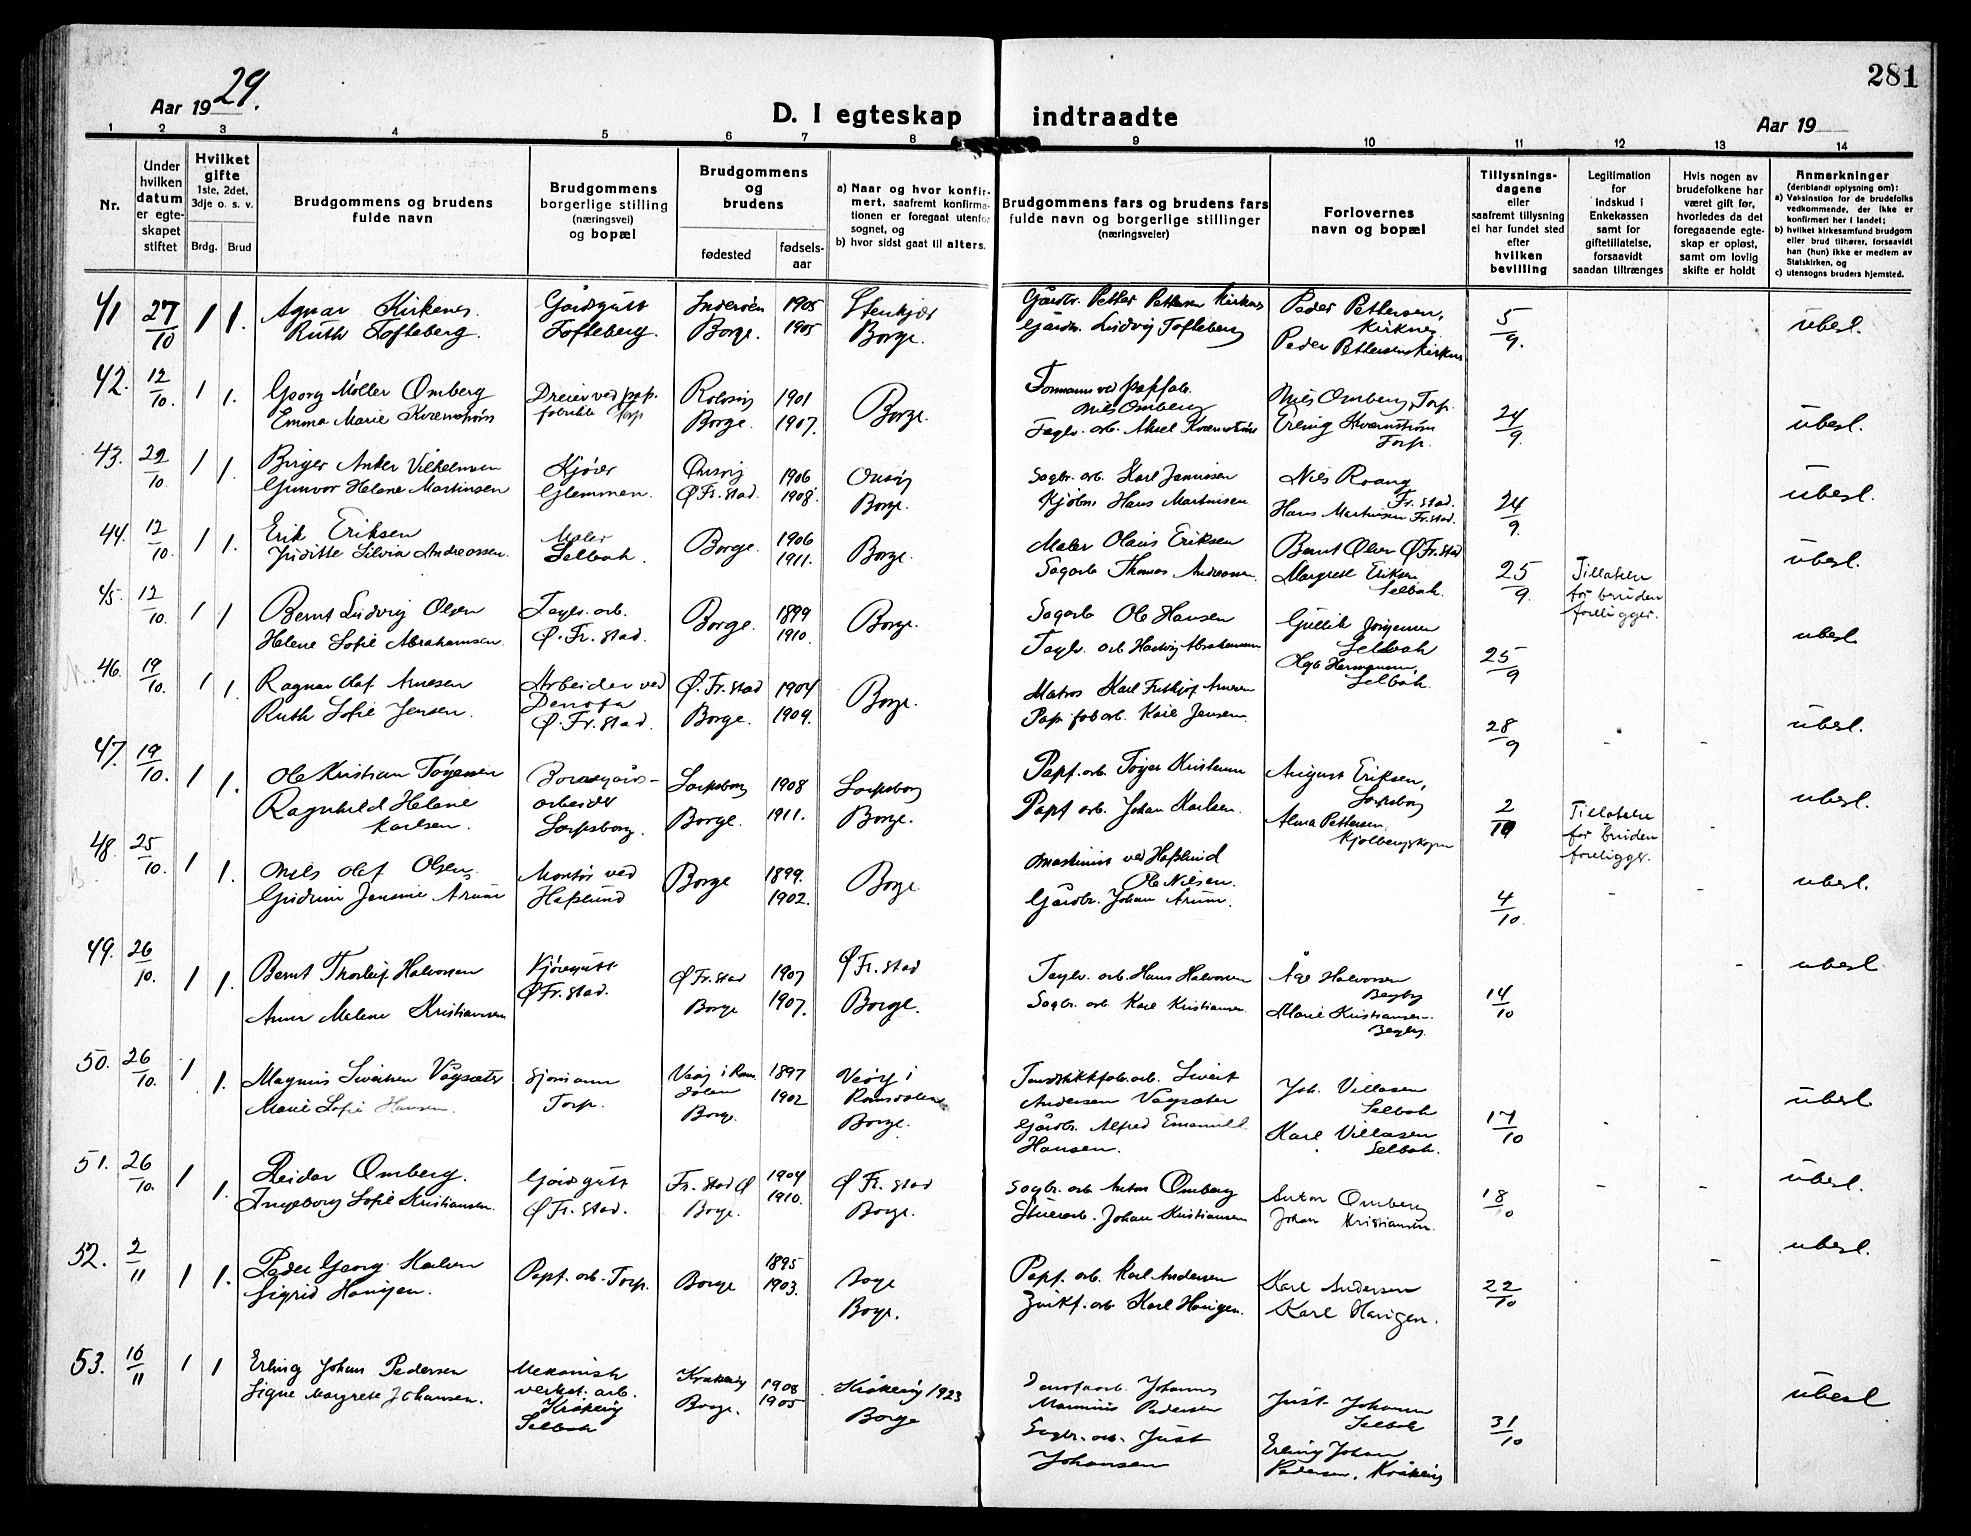 281
Aar 1929.
D. I egteskap indtraadte
Aar 19
1 2 3 4 5 6 7 8 9 10 11 12 13 14
Nr.
Under hvilken datum er egteskapet stiftet
Hvilket gifte
1ste, 2det, 3dje o. s. v.
Brdg. Brud
Brudgommens og brudens fulde navn
Brudgommens borgerlige stilling (næringsvei) og bopæl
Brudgommens og brudens
fødested fødselsaar
a) Naar og hvor konfirmert, saafremt konfirmationen er foregaat utenfor sognet, og
b) hvor sidst gaat til alters.
Brudgommens fars og brudens fars fulde navn og borgerlige stillinger (næringsveier)
Forlovernes navn og bopæl
Tillysningsdagene eller saafremt tillysning ei har fundet sted efter hvilken bevilling
Legitimation for indskud i Enkekassen samt for giftetillatelse, forsaavidt saadan tiltrænges
Hvis nogen av brudefolkene har været gift før, hvorledes da det foregaaende egteskap er opløst, samt om lovlig skifte er holdt
Anmerkninger (deriblandt oplysning om):
a) Vaksination for de brudefolks vedkommende, der ikke er konfirmert her i landet;
b) hvilket kirkesamfund brudgom eller brud tilhører, forsaavidt han (hun) ikke er medlem av Statskirken, og
c) utensogns bruders hjemsted.
41 27/10 1 1. Agnar Kirkenes. Gårdsgutt Inderøen 1905 Stenkjær Gårdbr. Petter Pettersen Kirknes Peder Pettersen, 5/9. ubesl.
Ruth Tofteberg. Tofteberg. Borge. 1905 Borge. Gårdbr. Ludvig Tofteberg Kirknes
Peder Pettersen Kirknes
42. 12/10. 1 1. Georg Møller Omberg Dreier ved pap. Rolvsøy 1901 Borge. Formann ved papfab. Nils Omberg, Torp. 24/9. ubesl.
Emma Marie Kvernstrøm fabrikk Torp Borge. 1907. Nils Omberg Erling Kvernstrøm
Teglv. arb. Aksel Kvernstrøm Torp.
43. 22/10 1 1. Birger Anker Vilhelmsen Kjører Onsøy 1906 Onsøy Sagbr. arb. Karl Jamissen Nils Roang 24/9. ubesl.
Gunvor Helene Martinsen Glemmen. Ø Fr. stad. 1908 Borge. Kjøbm. Hans Martinsen. Fr. stad.
Hans Martinsen Fr. stad.
44. 12/10. 1 1. Erik Eriksen Maler Borge. 1906 Borge. Maler Olaus Eriksen Bernt Olsen Ø Fr. stad 25/9. Tillatelse for bruden foreligger. ubesl.
Juditte Silvia Andreassen. Selbak. 1911. Sagarb Thomas Andreassen. Margrete Eriksen
Selbak.
45. 12/10. 1 1 Bernt Ludvig Olsen Teglv. arb. Borge. 1899 Borge. Sagarb Ole Hansen Gullik Jørgensen 25/9 ubesl.
Helene Sofie Abrahamsen Ø. Fr. stad. 1910. Teglv. arb Hartvig Abrahamsen Selbak
Olga Hermansen,
Selbak.
46. 19/10. 1 1. Ragnar Olaf Arnesen Arbeider ved Ø. Fr. stad 1904 Borge. Matros Karl Fritkjof Arnesen 28/9 - ubesl.
Ruth Sofie Jensen. Denofa Borge. 1909. Pap. fab arb. Karl Jensen
Ø. Fr. stad.
47. 19/10. 1 1. Ole Kristian Tøgersen Borregårds- Sarpsborg 1908 Sarpsborg Papf. arb. Tøger Kristiansen August Eriksen, 2/10 Tillatelse for bruden foreligger. - ubesl.
Ragnhild Helene arbeider Borge. 1911. Borge. Papf arb. Johan Karlsen. Sarpsborg
Karlsen. Sarpsborg. Alma Pettersen
Kjølbergskogen
48. 25/10. 1 1. Nils Olaf Olsen Montør ved Borge 1899. Borge Maskinist ved Hafslund 4/10 - - ubesl.
Gudrun Jensine Arum Hafslund 1902. Ole Nilsen.
Gårdbr. Johan Arum.
49. 26/10. 1 1. Bernt Thorleif Halvorsen Kjøregutt Ø Fr. stad 1907 Ø Fr. stad Teglv. arb. Hans Halvorsen Åge Halvorsen 14/10 - ubesl.
Anna Malene Kristiansen Ø Fr. stad. Borge 1907. Borge. Sagbr. arb Karl Kristiansen Begby
Marie Kristiansen
Begby.
50. 26/10. 1 1. Magnus Sivertsen Vågsæter Sjømann Veøy i Rom 1897 Veøy i Tændstikkfab. arb. Sivert Joh. Villasen 17/10 - ubesl.
Marie Sofie Hansen. Torp. sdalen 1902 Romsdalen Andersen Vågsæter Selbak
Borge. Borge. Gårdbr. Alfred Emanuel Karl Villasen
Hansen. Selbak.
51. 26/10. 1 1. Reidar Omberg. Gårdsgutt Fr. stad Ø 1904 Ø Fr. stad Sagbr. arb Anton Omberg Anton Omberg 18/10 - - ubesl.
Ingeborg Sofie Kristiansen. Ø Fr. stad. Borge. 1910. Borge. Stuerarb. Johan Kristiansen Johan Kristiansen.
52. 2/11 1 1. Peder Georg Karlsen Papf. arb. Torp. Borge 1895 Borge Papf. arb. Karl Andersen Karl Andersen 22/10 - ubesl.
Sigrid Haugen. 1903. Borge. Zinkf. arb Karl Haugen. Karl Haugen.
53. 16/11 1 1 Erling Johan Pedersen Mekanisk Kråkerøy 1908 Kråkerøy 1923 Denofaarb. Johannes Just Johansen 31/10 ubesl
Signe Margrete Johansen. verkst. arb. Borge. 1905 Borge Marinius Pedersen Selbak
Kråkerøy Sagbr. arb. Just Erling Johan
Selbak Johansen Pedersen, Kråkerøy